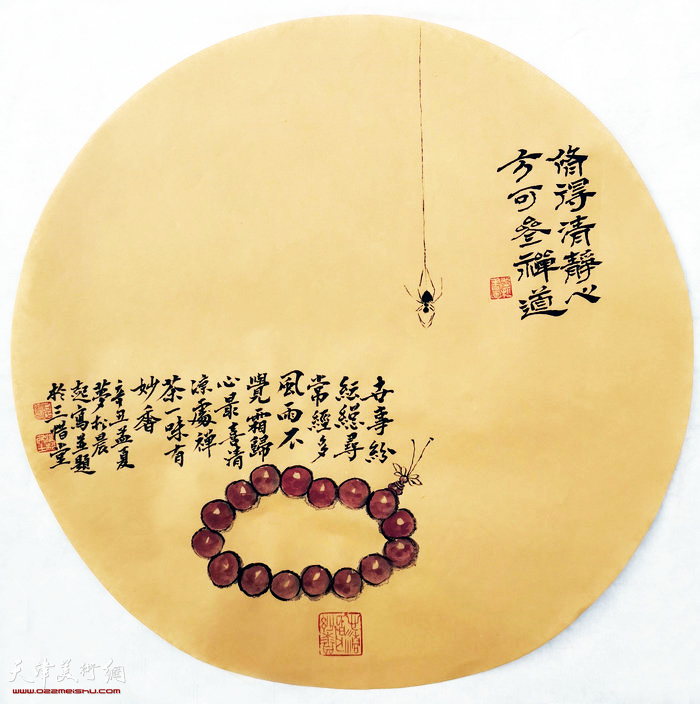 脩得清靜心
方可叅禪道
世事紛
紜總尋
常經多
風雨不
覺霜歸
心最喜清
涼處禪
茶一味有
妙香
辛丑孟夏
夢於晨
起寫並題
於三惜堂
天津美術網
www.022meishu.com